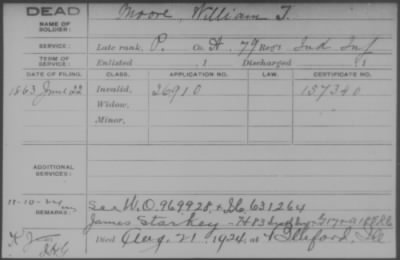 DEAD
NAME OF SOLDIER: Moore, William T.
SERVICE: Late rank, P. Co. A, 79 Reg't Ind Inf
TERM OF SERVICE: Enlisted , 1 Discharged , 1
DATE OF FILING. CLASS. APPLICATION NO. LAW. CERTIFICATE NO.
1863 June 22 Invalid, 26910 157340
Widow,
Minor,
ADDITIONAL SERVICES:
REMARKS: See W.O. 969928, + 631264
James Starkey
Died Aug. 21, 1924, at